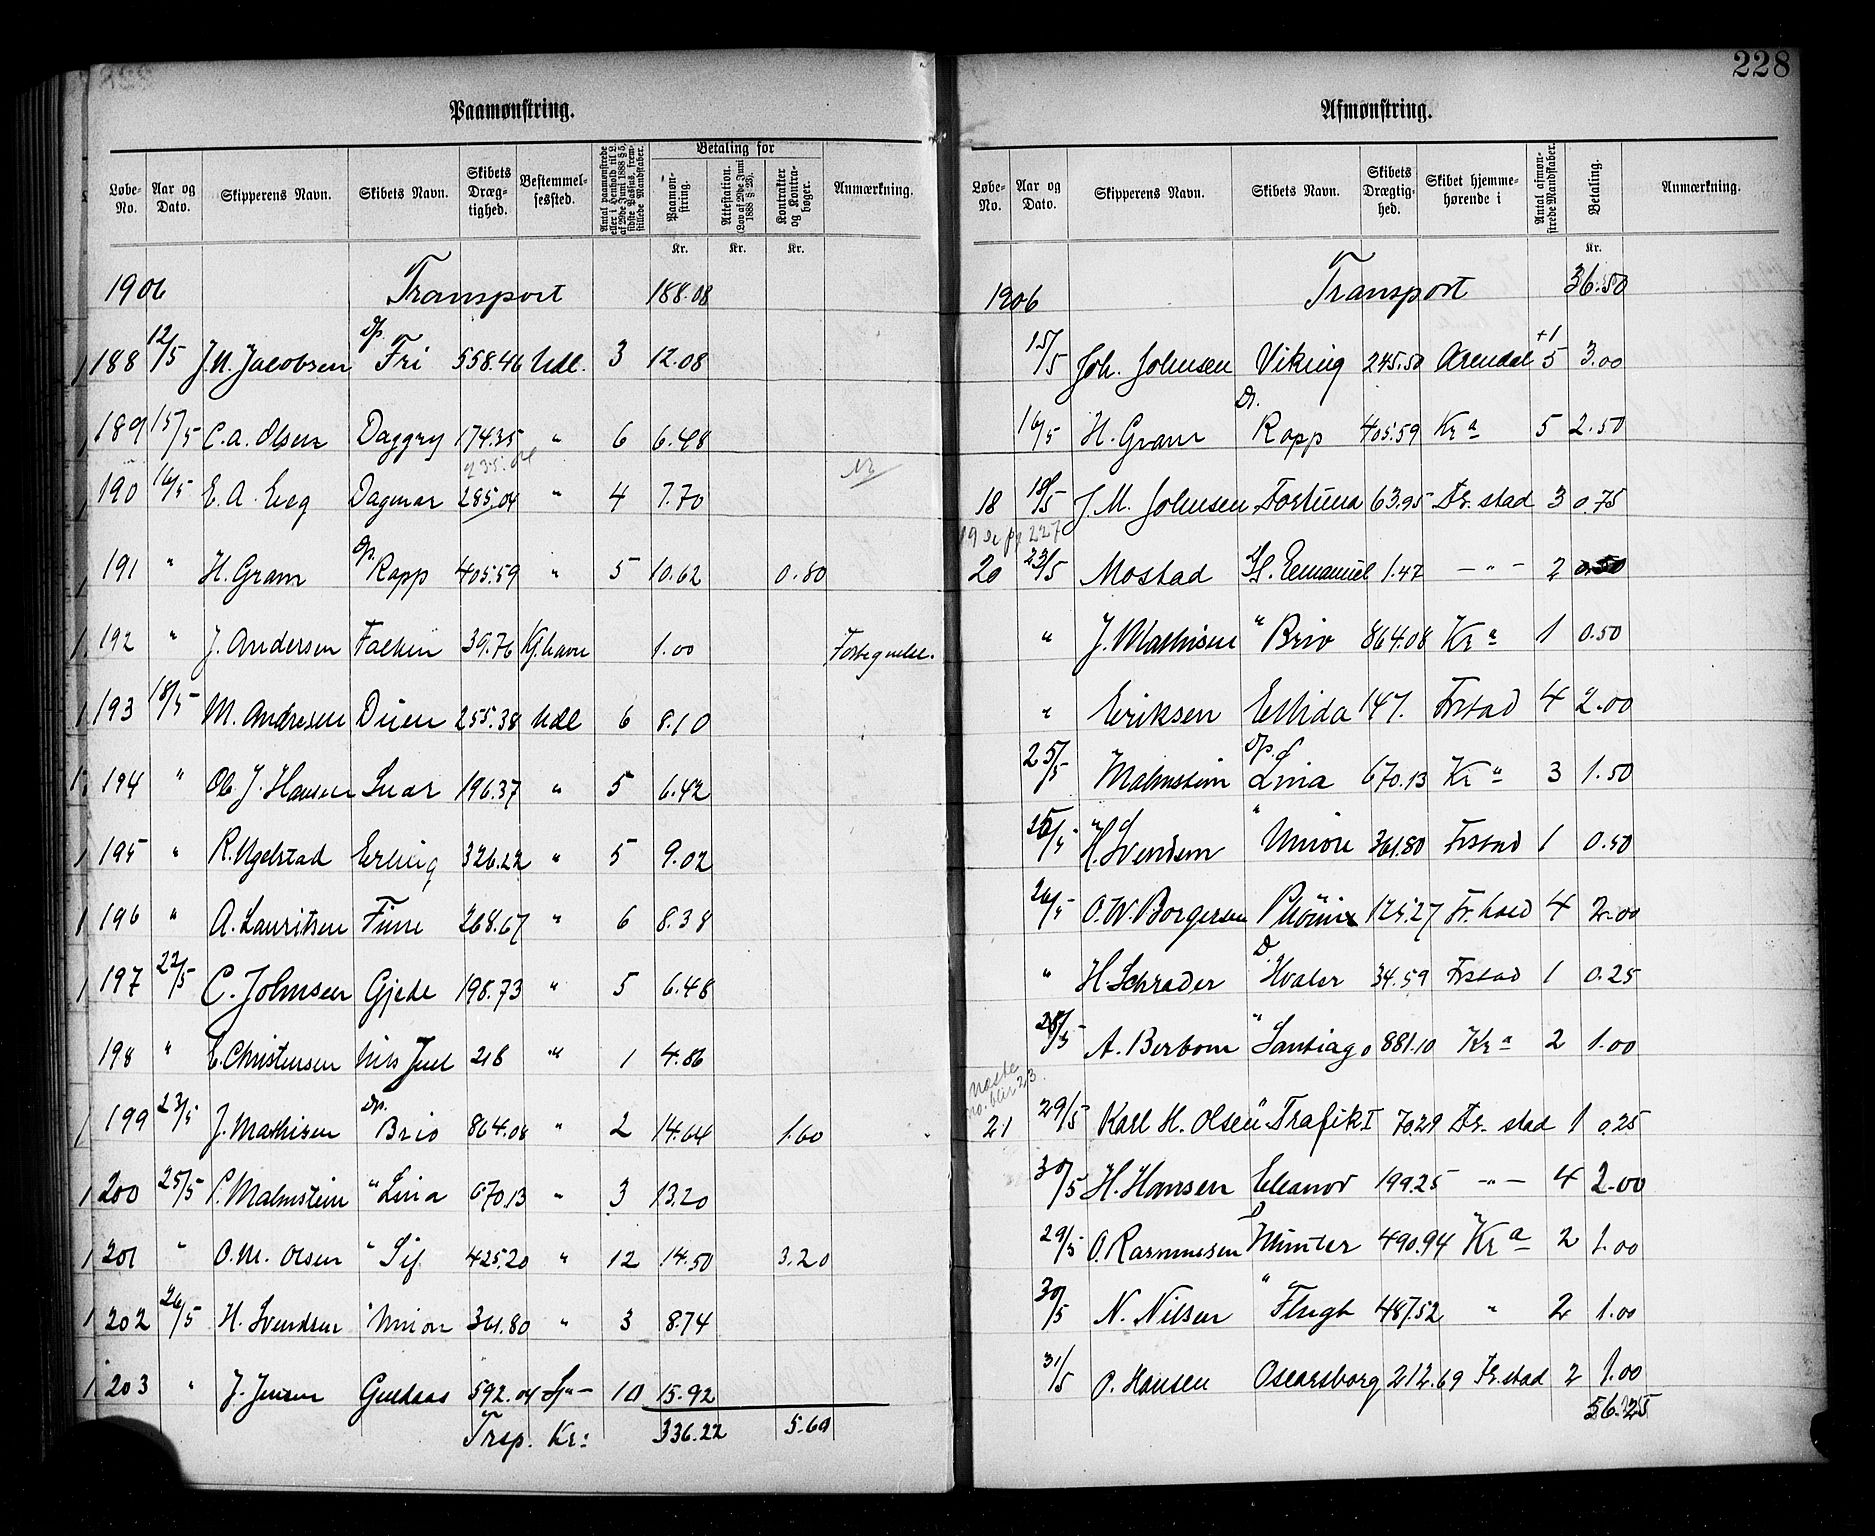 228
Paamønstring.
Løbe-No. Aar og Dato. Skipperens Navn. Skibets Navn. Skibets Dræg-tighed. Bestemmel-sessted. Antal paamønstrede eller i Henhold til L. af 29de Juni 1888 § 5, sidste Passus, frem-stillede Mandskaber. Betaling for Paamøn-string. Attestation. (Lov af 29de Juni 1888 § 23). Kontrakter og Kontra-bøger. Anmærkning.
Kr. Kr. Kr.
1906 Transport 188.08
188 12/5 J. N. Jacobsen Dp. Fri 558.46 Udl. 3 12.08
189 15/5 C. A. Olsen Daggry 174.35 " 6 6.48
190 16/5 E. A. Eeg Dagmar 285.04 " 4 7.70
191 " H. Gram Dp. Rapp 405.59 " 5 10.62 0.80
192 " J. Andersen Falken 39.76 Kj.havn 1.00
193 18/5 M. Andresen Duen 255.38 Udl 6 8.10
194 " Ol. J. Hansen Snar 196.37 " 5 6.42
195 " R. Ugelstad Erling 326.22 " 5 9.02
196 " A. Lauritsen Finn 268.67 " 6 8.38
197 22/5 C. Johnsen Gjede 198.73 " 5 6.48
198 " E. Christensen Nils Juel 218 " 1 4.86
199 23/5 J. Mathisen Dp. Brio 864.08 " 2 14.64 1.60
200 25/5 P. Malmstein " Lina 670.13 " 3 13.20
201 " O. M. Olsen " Sif 425.20 " 12 14.50 3.20
202 26/5 H. Svendsen " Union 361.80 " 3 8.74
203 " J. Jensen Guldaas 592.04 10 15.92
Trsp. Kr: 336.22 5.60
Afmønstring.
Løbe-No. Aar og Dato. Skipperens Navn. Skibets Navn. Skibets Drægtig-hed. Skibet hjemme-hørende i Antal afmøn-strede Mandskaber. Betaling. Anmærkning.
Kr.
1906 Transport 36.50
15/5 Joh. Johnsen Viking 245.50 Arendal +1 5 3.00
16/5 H. Gram D. Rapp 405.59 Kra 5 2.50
18 18/5 J. M. Johnsen Fortuna 63.95 Fr.stad 3 0.75
19 Se pg 227
20 23/5 Mostad Emanuel 1.47 - " - 2 0.50
" J. Mathisen " Brio 864.08 Kra 1 0.50
" Eriksen Ellida 147. Frstad 4 2.00
25/5 Malmstein Dp. Lina 670.13 Kra 3 1.50
25/5 H. Svendsen " Union 361.80 Frstad 1 0.50
26/5 O. W. Borgersen Phönix 125.27 Fr.hald 4 2.00
" H. Schrader D. Hvaler 34.59 Frstad 1 0.25
28/5 A. Berbom " Santiago 881.10 Kra 2 1.00
næste no. blir 23
21 29/5 Karl H. Olsen " Trafik I 70.29 Fr.stad 1 0.25
30/5 H. Hansen Eleanor 199.25 - " - 4 2.00
29/5 O. Rasmussen D Munter 490.94 Kra 2 1.00
30/5 N. Nilsen " Flugt 487.52 " 2 1.00
31/5 O. Hansen Oscarsborg 212.69 Fr.stad 2 1.00
56.25